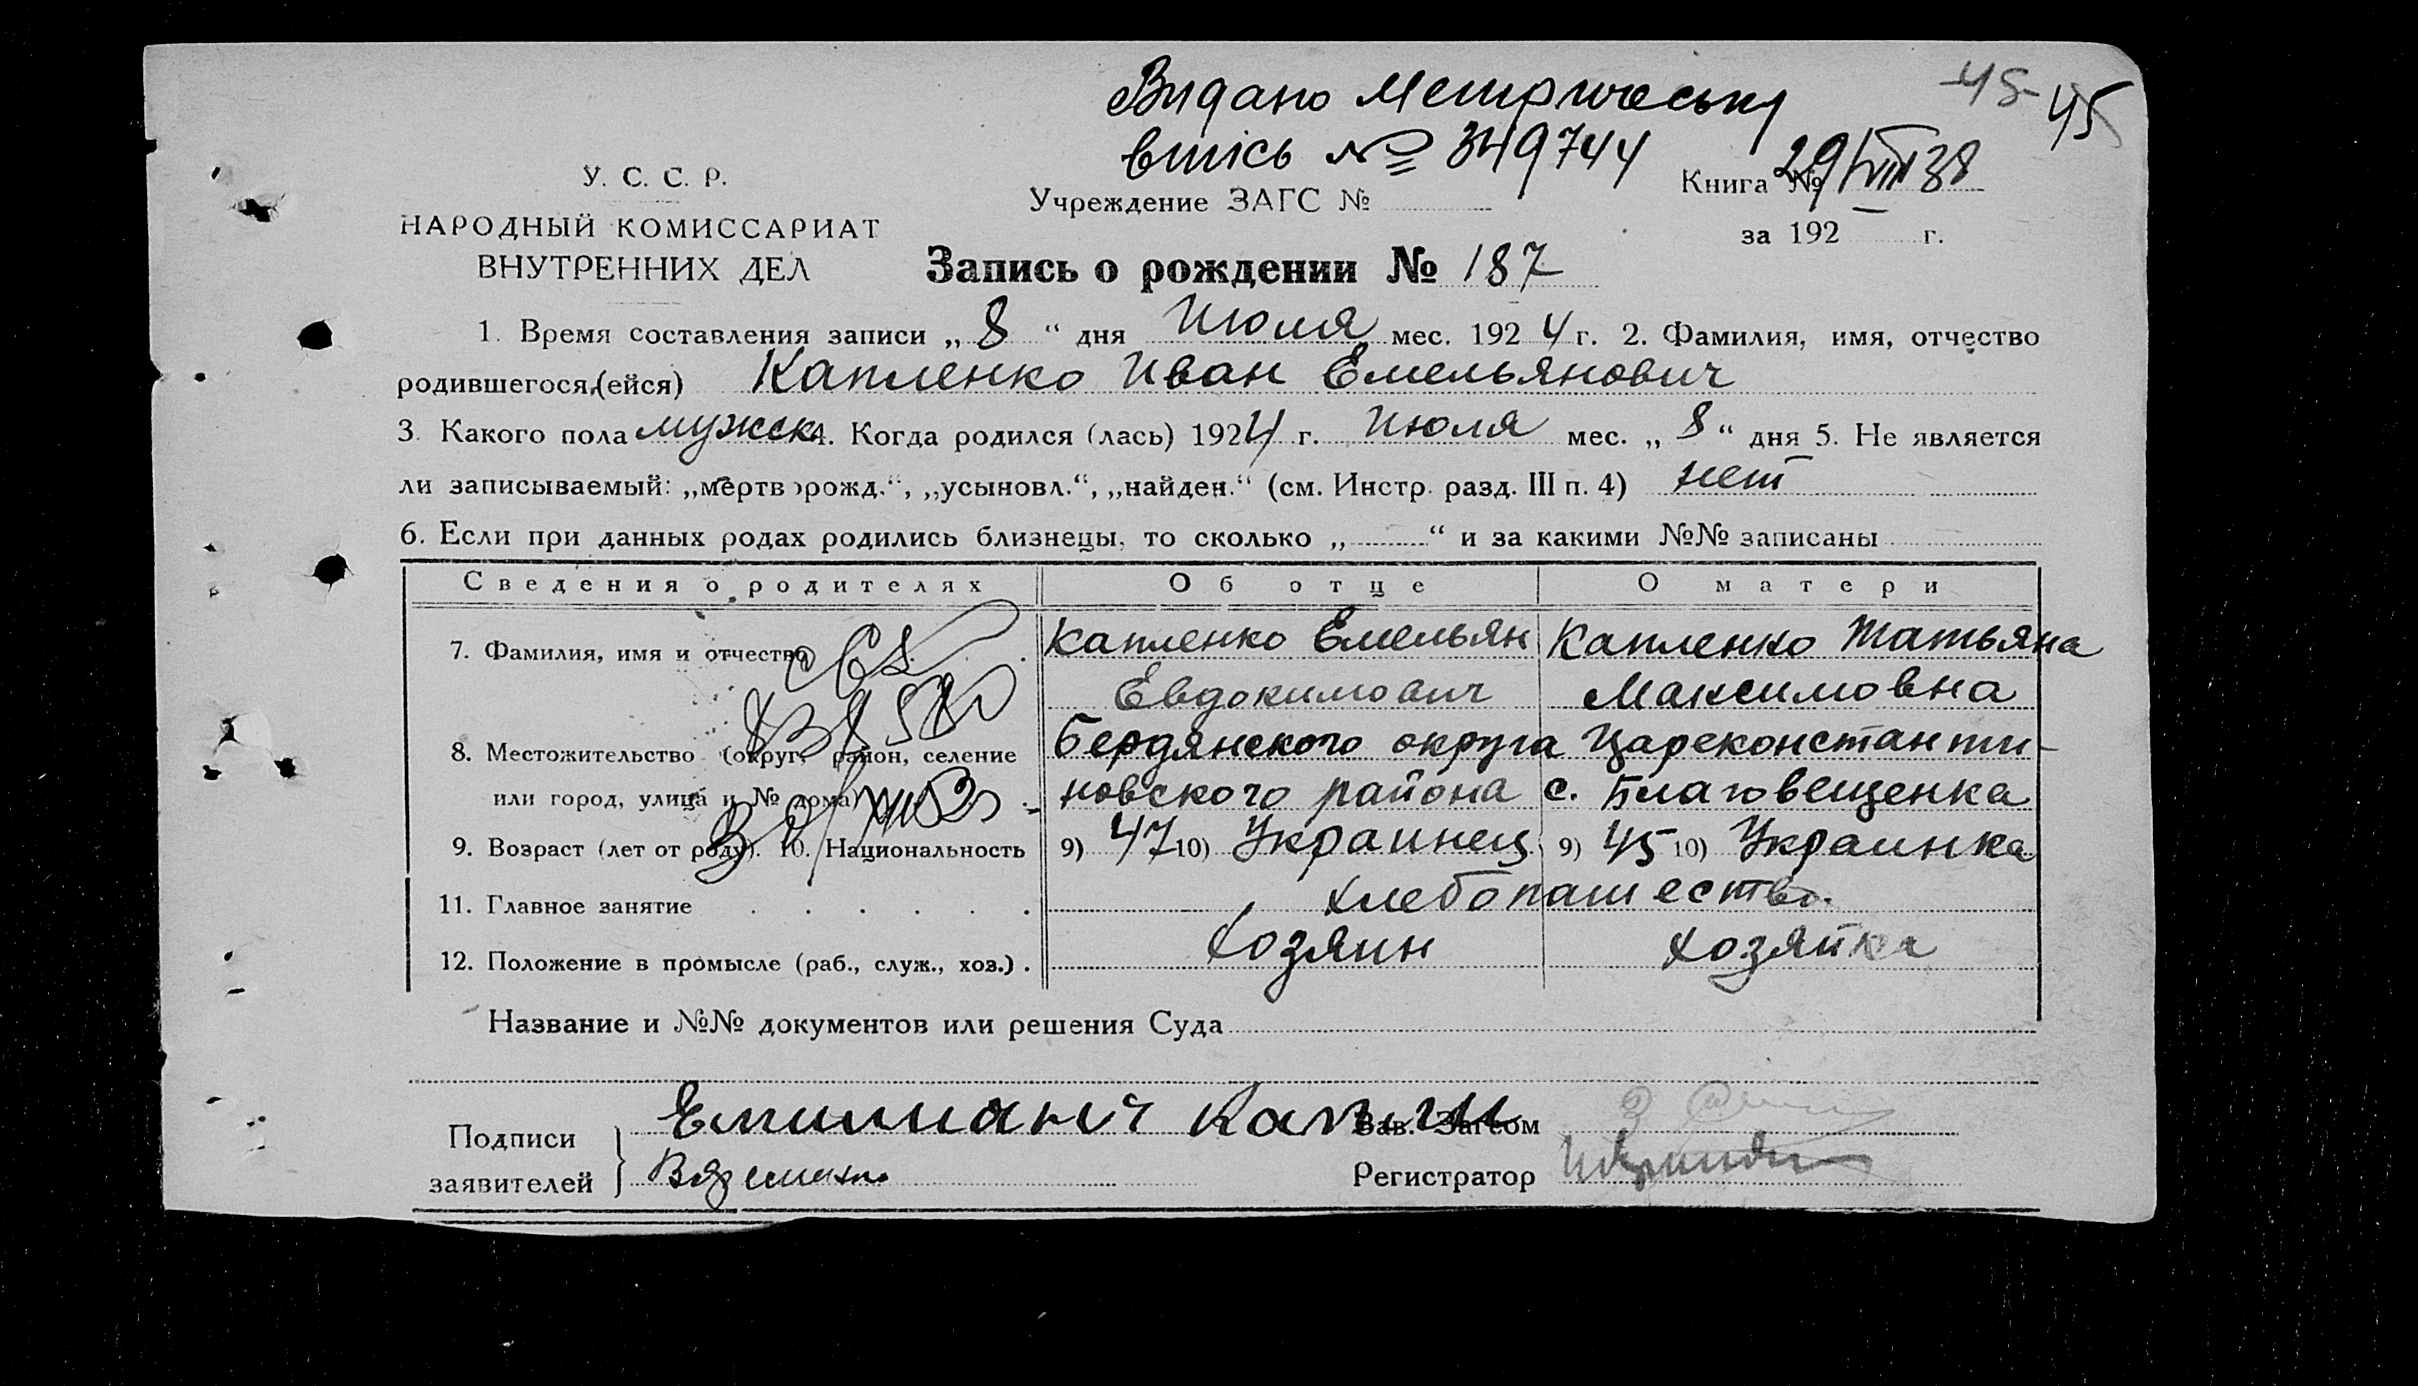 45 45
Видано Метрическу
впись № 349744
29/VIII 38
У. С. С. Р.
НАРОДНЫЙ КОМИССАРИАТ
ВНУТРЕННИХ ДЕЛ
Учреждение ЗАГС №
Книга №
за 192 г.
Запись о рождении № 187
1. Время составления записи „ 8 “ дня Июля мес. 192 4 г. 2. Фамилия, имя, отчество
родившегося,(ейся) Капленко Иван Емельянович
3. Какого пола мужск 4. Когда родился (лась) 1924 г. Июля мес. „ 8 “ дня 5. Не является
ли записываемый: „мертворожд.“, „усыновл.“, „найден.“ (см. Инстр. разд. III п. 4) нет
6. Если при данных родах родились близнецы, то сколько „ “ и за какими №№ записаны
Сведения о родителях Об отце О матери
7. Фамилия, имя и отчество Капленко Емельян Капленко Татьяна
Евдокимович Максимовна
8. Местожительство (округ, район, селение Бердянского округа Цареконстанти-
или город, улица и № дома) новского района с. Благовещенка
9. Возраст (лет от роду). 10. Национальность 9) 47 10) Украинец 9) 45 10) Украинка
11. Главное занятие хлебопашество.
12. Положение в промысле (раб., служ., хоз.) . Хозяин Хозяйка
Название и №№ документов или решения Суда
Подписи
заявителей
Зав. Загсом
Регистратор